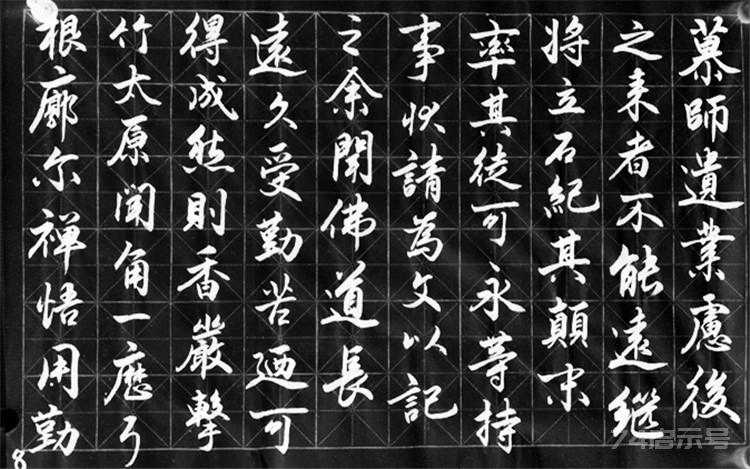 慕師遺業慮後
之来者不能遠继
将立石紀其顛末
率其徒可永等持
事状請為文以記
之余聞佛道長
遠久受勤苦廼可
得成然則香嚴擊
竹太原闻角一歷耳
根廓尔禅悟用勤
8
启示号